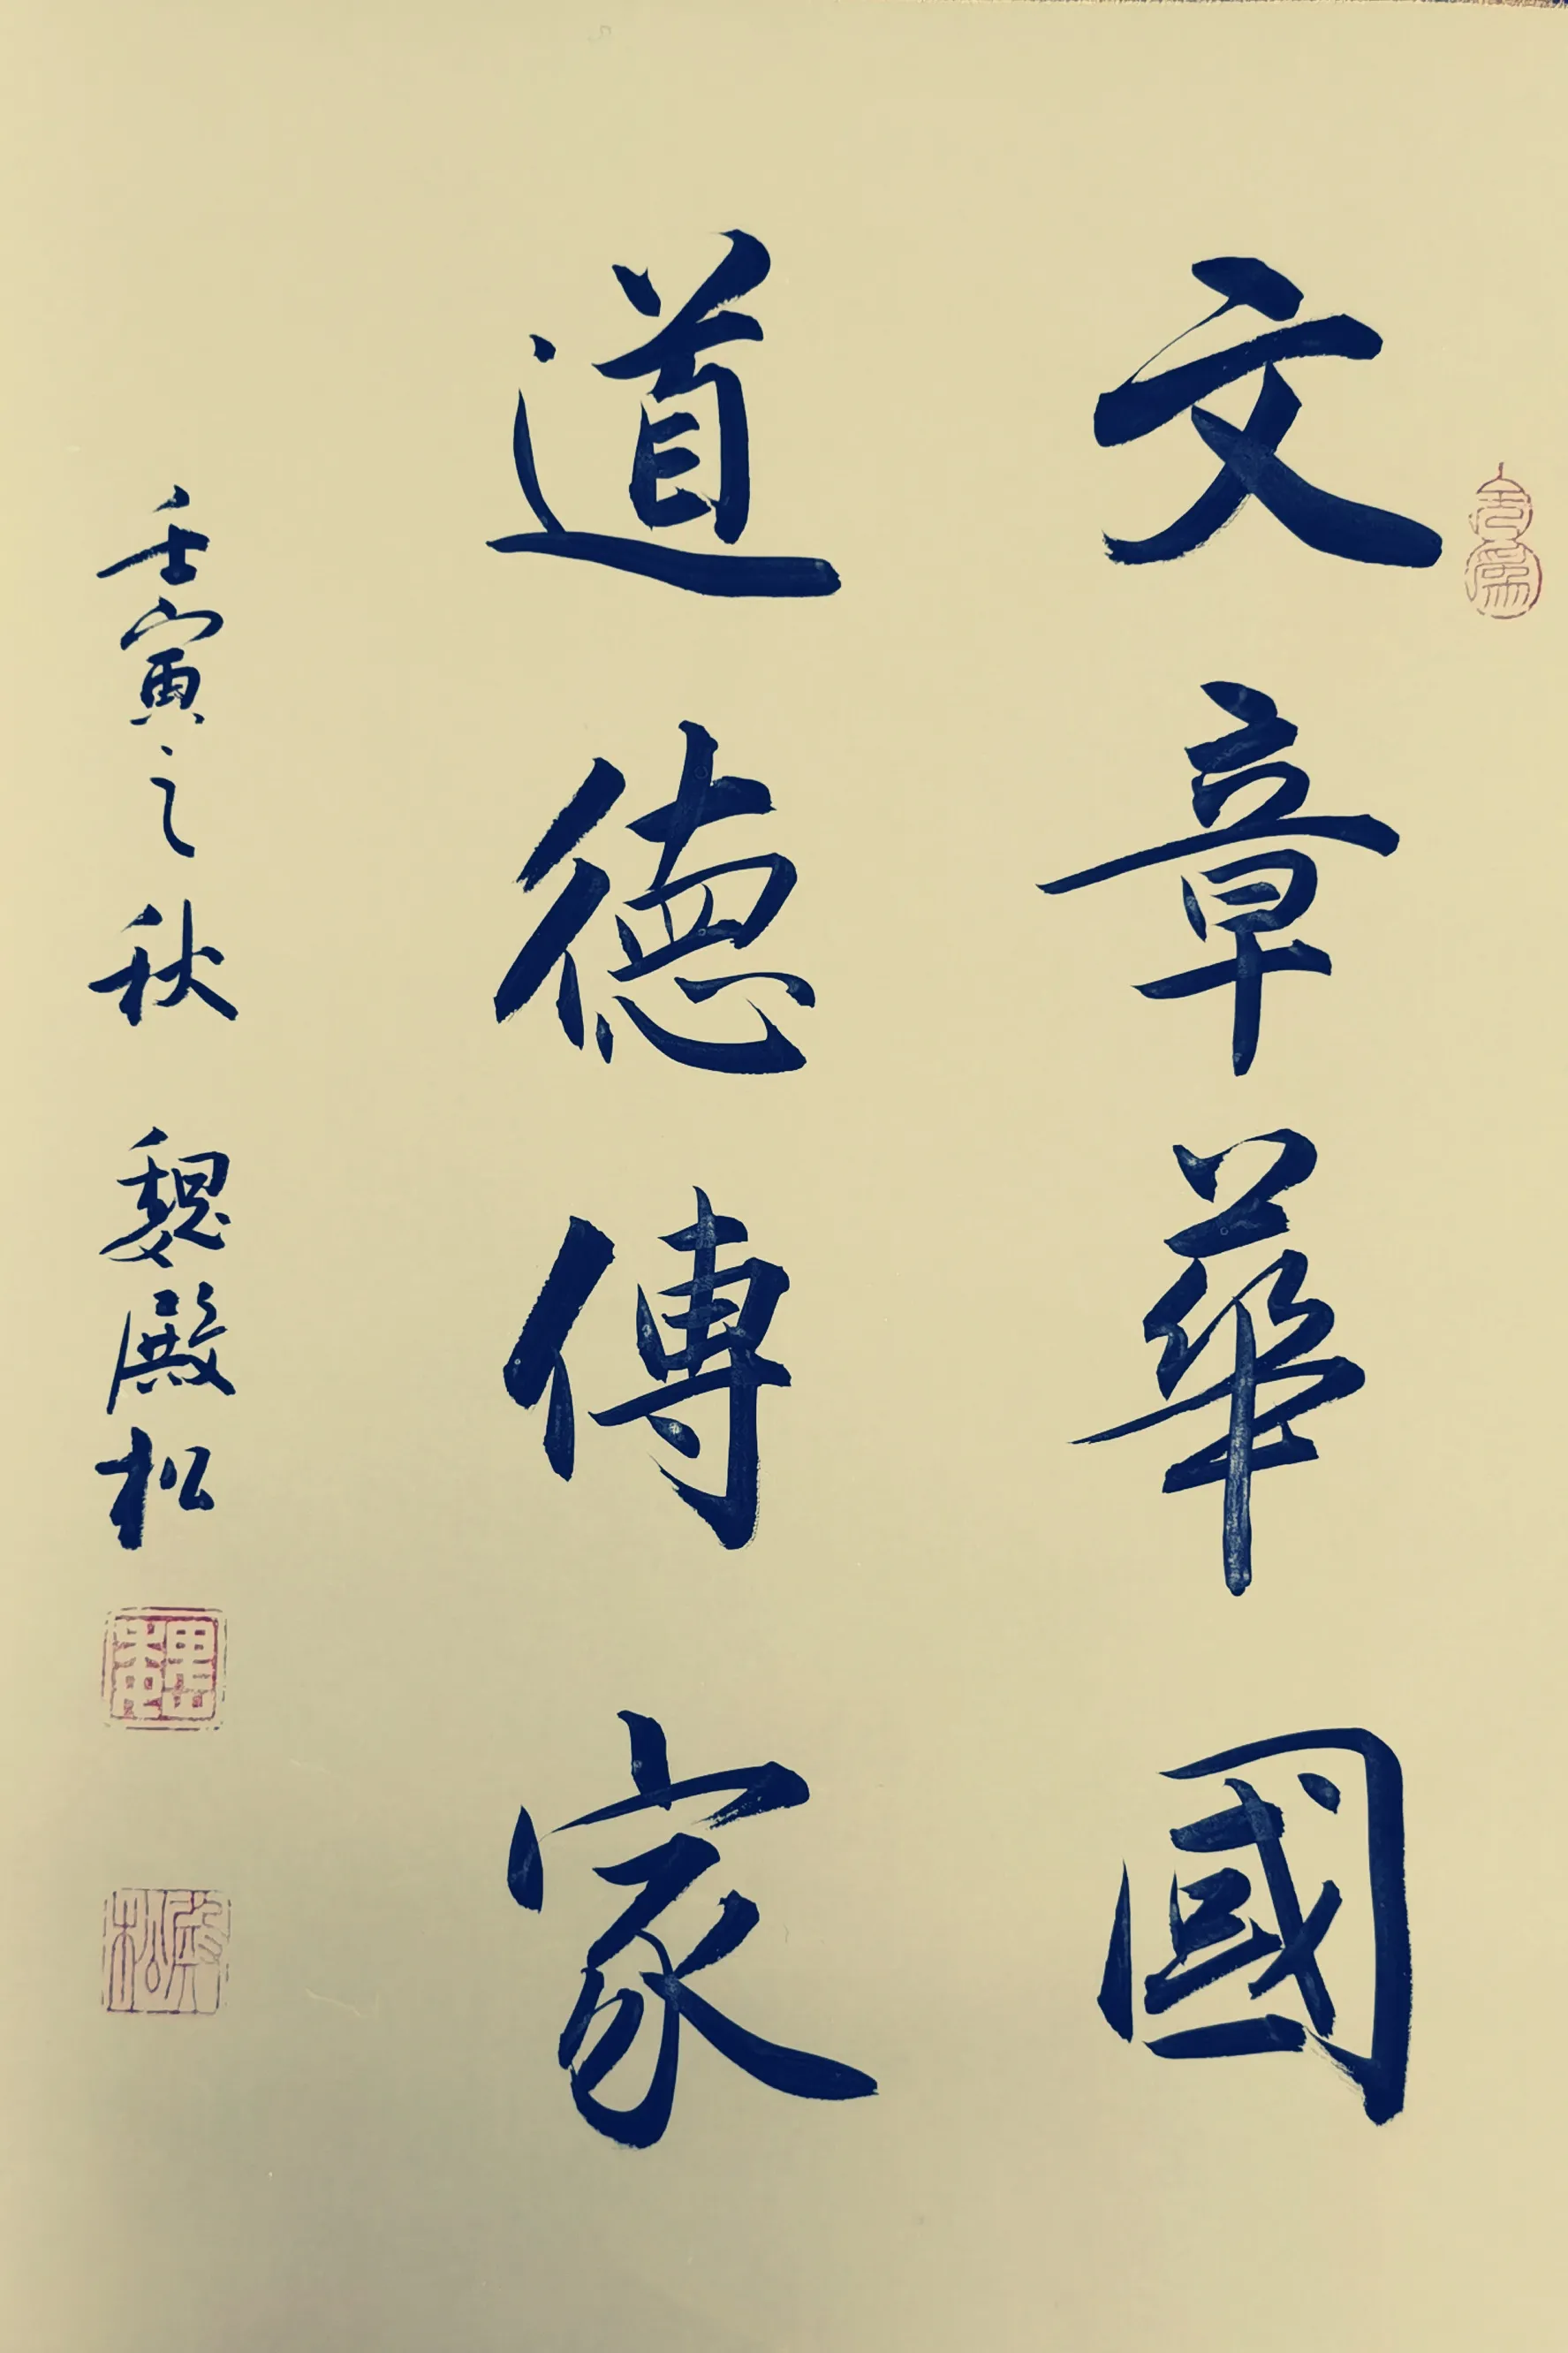 文章華國
道德傳家
壬寅之秋 魏殿松